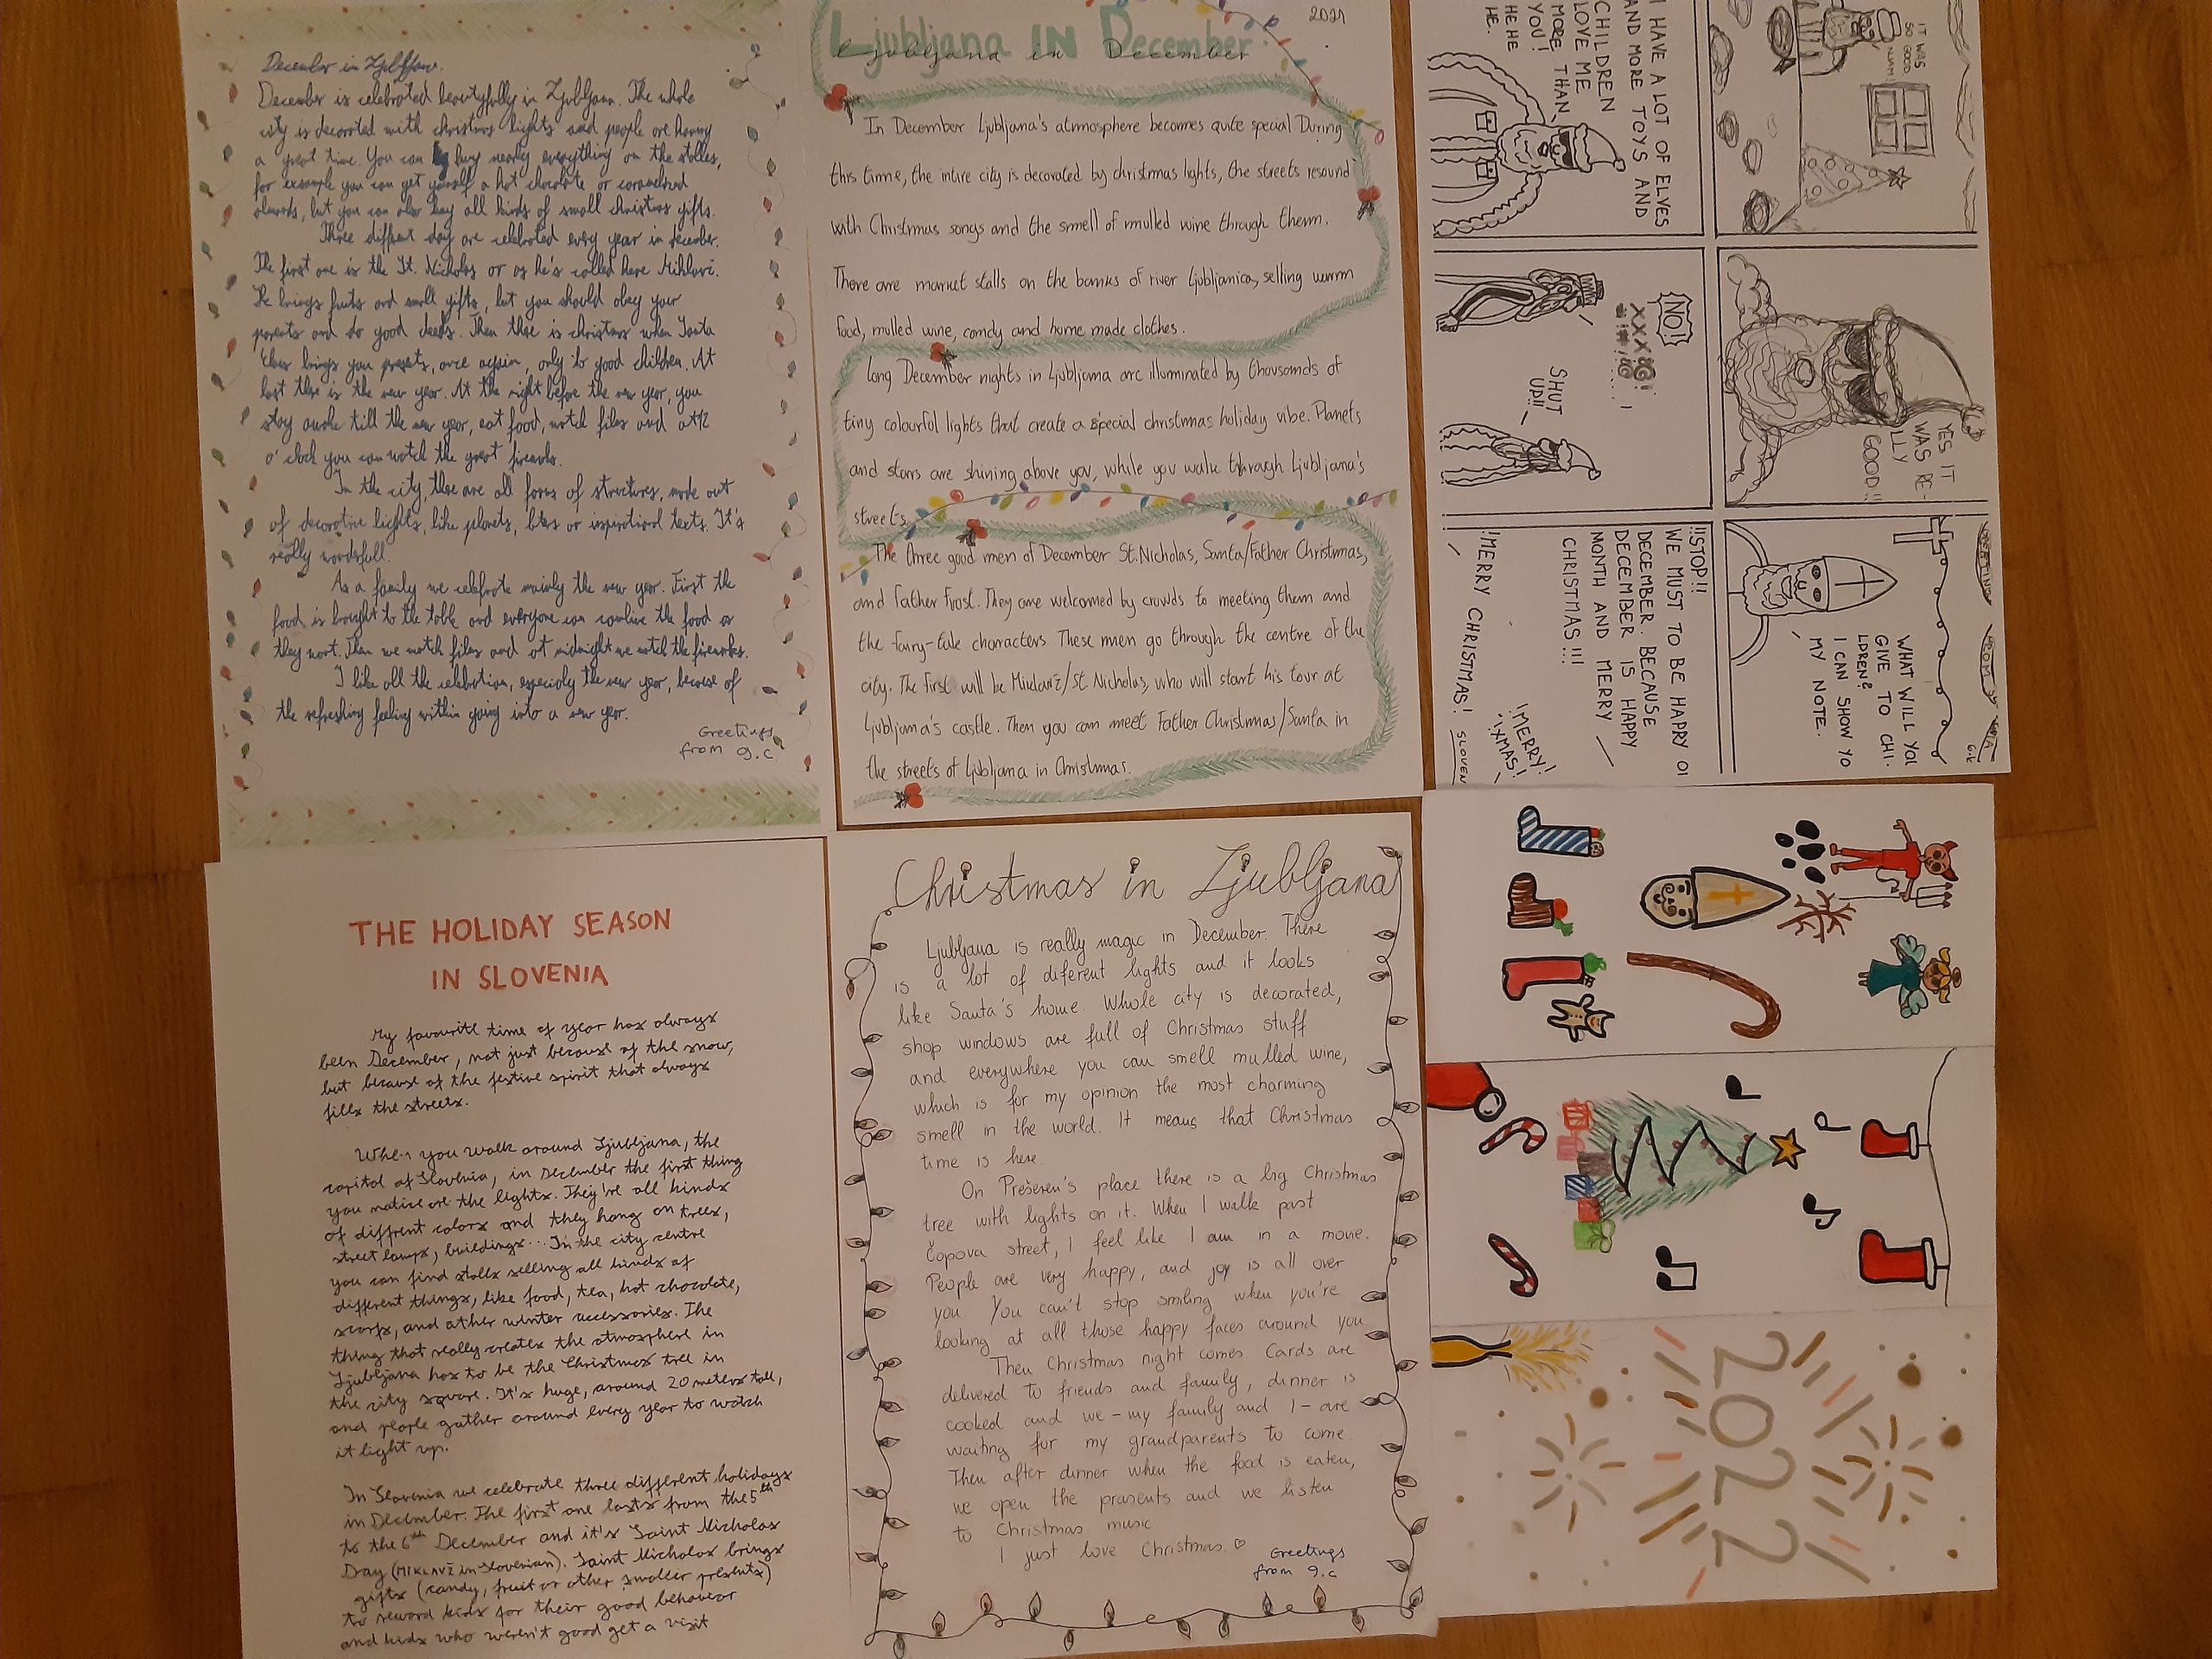 December in Ljubljana.
December is celebrated beautyfully in Ljubljana. The whole
city is decorated with christmas lights and people are having
a great time. You can buy nearly everything on the stalles,
for example you can get yourself a hot chocolate or caramelised
almonds, but you can also buy all kinds of small christmas gifts.
Three diffrent day are celebrated every year in december.
The first one is the St. Nicholas or as he's called here Miklavž.
He brings fruits and small gifts, but you should obey your
parents and do good deeds. Then there is christmas when Santa
Claus brings you presets, once again, only to good children. At
last there is the new year. At the night before the new year, you
stay awake till the new year, eat food, watch films and at 12
o'clock you can watch the great fireworks.
In the city, there are all forms of structures, made out
of decorative lights, like planets, or inspirational texts. It's
really
As a family we celebrate mainly the new year. First the
food is brought to the table and everyone can combine the food as
they want. Then we watch films and at midnight we watch the fireworks.
I like all the celebration, especialy the new year, because of
the refreshing feeling within going into a new year.
Greetings
from 9.c
2021
Ljubljana IN December
Ljubljana in December
In December Ljubljana's atmosphere becomes quite special During
this time, the intire city is decorated by christmas lights, the streets resound
with Christmas songs and the smell of mulled wine through them.
There are market stalls on the banks of river Ljubljanica, selling warm
food, mulled wine, candy and home made clothes.
long December nights in Ljubljana are illuminated by thousands of
tiny colourful lights that create a special christmas holiday vibe. Planets
and stars are shining above you, while you walk through Ljubljana's
streets.
The three good men of December St. Nicholas, Santa/Father Christmas,
and father Frost. They are welcomed by crowds to meeting them and
the fairy-tale characters. These men go through the centre of the
city. The first will be Miklavž/St. Nicholas, who will start his tour at
Ljubljana's castle. Then you can meet Father Christmas/Santa in
the streets of Ljubljana in Christmas.
IT WAS
SO GOOD
NJAMI
YES IT
WAS RE-
LLY
GOOD!!
WHAT WILL YOU
GIVE TO CHI-
LDREN?
I CAN SHOW YO
MY NOTE.
I HAVE A LOT OF ELVES
AND MORE TOYS AND
CHILDREN
LOVE ME
MORE THAN
YOU!
HE HE
HE.
NO!
SHUT
UP!!
!!STOP!!
WE MUST TO BE HAPPY OI
DECEMBER. BECAUSE
DECEMBER IS HAPPY
MONTH AND MERRY
CHRISTMAS!!!
!MERRY CHRISTMAS!
!MERRY!
!XMAS!
SLOVEN
THE HOLIDAY SEASON
IN SLOVENIA
My favourite time of year has always
been December, not just because of the snow,
but because of the festive spirit that always
fills the streets.
When you walk around Ljubljana, the
capital of Slovenia, in December the first thing
you notice are the lights. They're all kinds
of diffrent colors and they hang on trees,
street lamps, buildings... In the city centre
you can find stalls selling all kinds of
different things, like food, tea, hot chocolate,
scarfs, and other winter accessories. The
thing that really creates the atmosphere in
Ljubljana has to be the Christmas tree in
the city square. It's huge, around 20 meters tall,
and people gather around every year to watch
it light up.
In Slovenia we celebrate three different holidays
in December. The first one lasts from the 5th
to the 6th December and it's Saint Nicholas
Day (MIKLAVŽ in Slovenian). Saint Nicholas brings
gifts (candy, fruit or other smaller presents)
to reward kids for their good behavior
and kids who weren't good get a visit
Christmas in Ljubljana
Ljubljana is really magic in December. There
is a lot of diferent lights and it looks
like Santa's home. Whole city is decorated,
shop windows are full of Christmas stuff
and everywhere you can smell mulled wine,
which is for my opinion the most charming
smell in the world. It means that Christmas
time is here
On Prešeren's place there is a big Christmas
tree with lights on it. When I walk past
Čopova street, I feel like I am in a movie.
People are very happy, and joy is all over
you. You can't stop smiling when you're
looking at all those happy faces around you
Then Christmas night comes. Cards are
delivered to friends and family, dinner is
cooked and we - my family and I - are
waiting for my grandparents to come.
Then after dinner when the food is eaten,
we open the prasents and we listen
to Christmas music
I just love Christmas. ♡
Greetings
from 9.c
2022